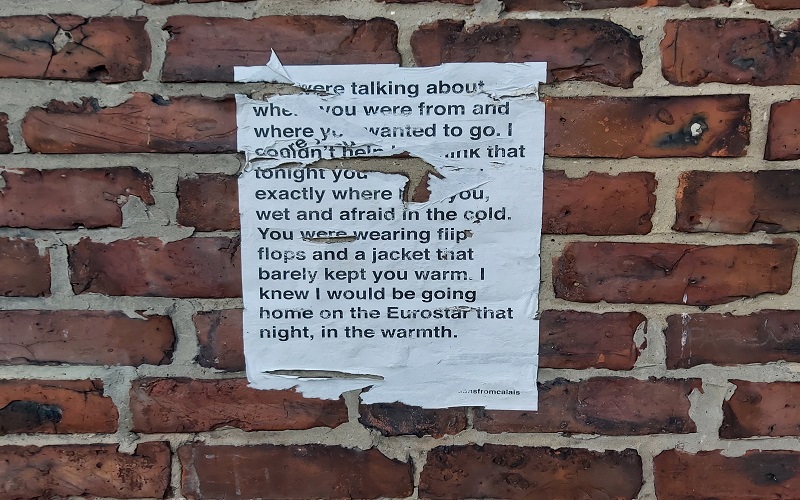 were talking about
you were from and
where wanted to go. I
couldn't help think that
tonight you
exactly where you,
wet and afraid in the cold.
You were wearing flip
flops and a jacket that
barely kept you warm. I
knew I would be going
home on the Eurostar that
night, in the warmth.